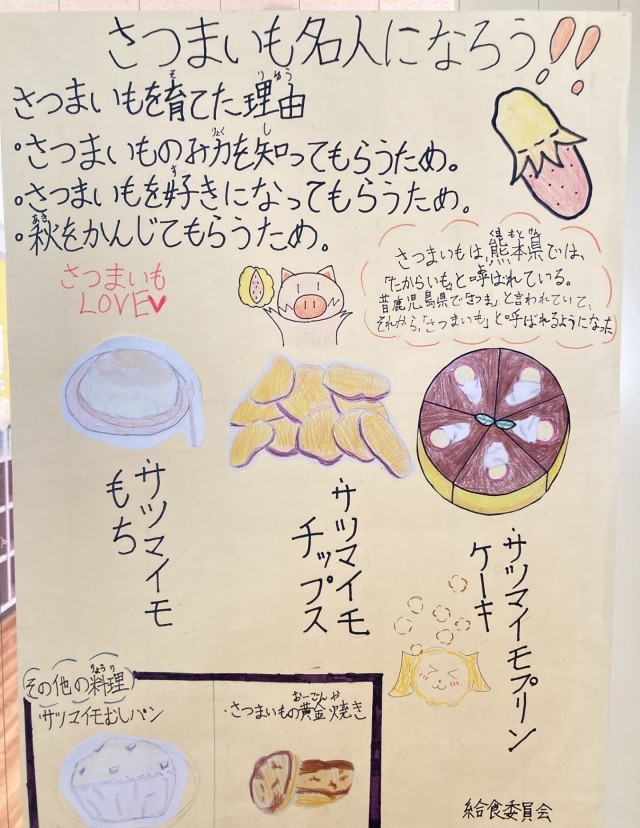 さつまいも名人になろう!!
さつまいもを育てた理由
・さつまいものみ力を知ってもらうため。
・さつまいもを好きになってもらうため。
・秋をかんじてもらうため。
さつまいも
LOVE♥
さつまいもは、熊本県では、
「たからいも」と呼ばれている。
昔鹿児島県で「さつま」と言われていて、
それから、「さつまいも」と呼ばれるようになった
サツマイモ
もち
サツマイモ
チップス
サツマイモプリン
ケーキ
その他の料理
・サツマイモむしパン
・さつまいもの黄金焼き
給食委員会